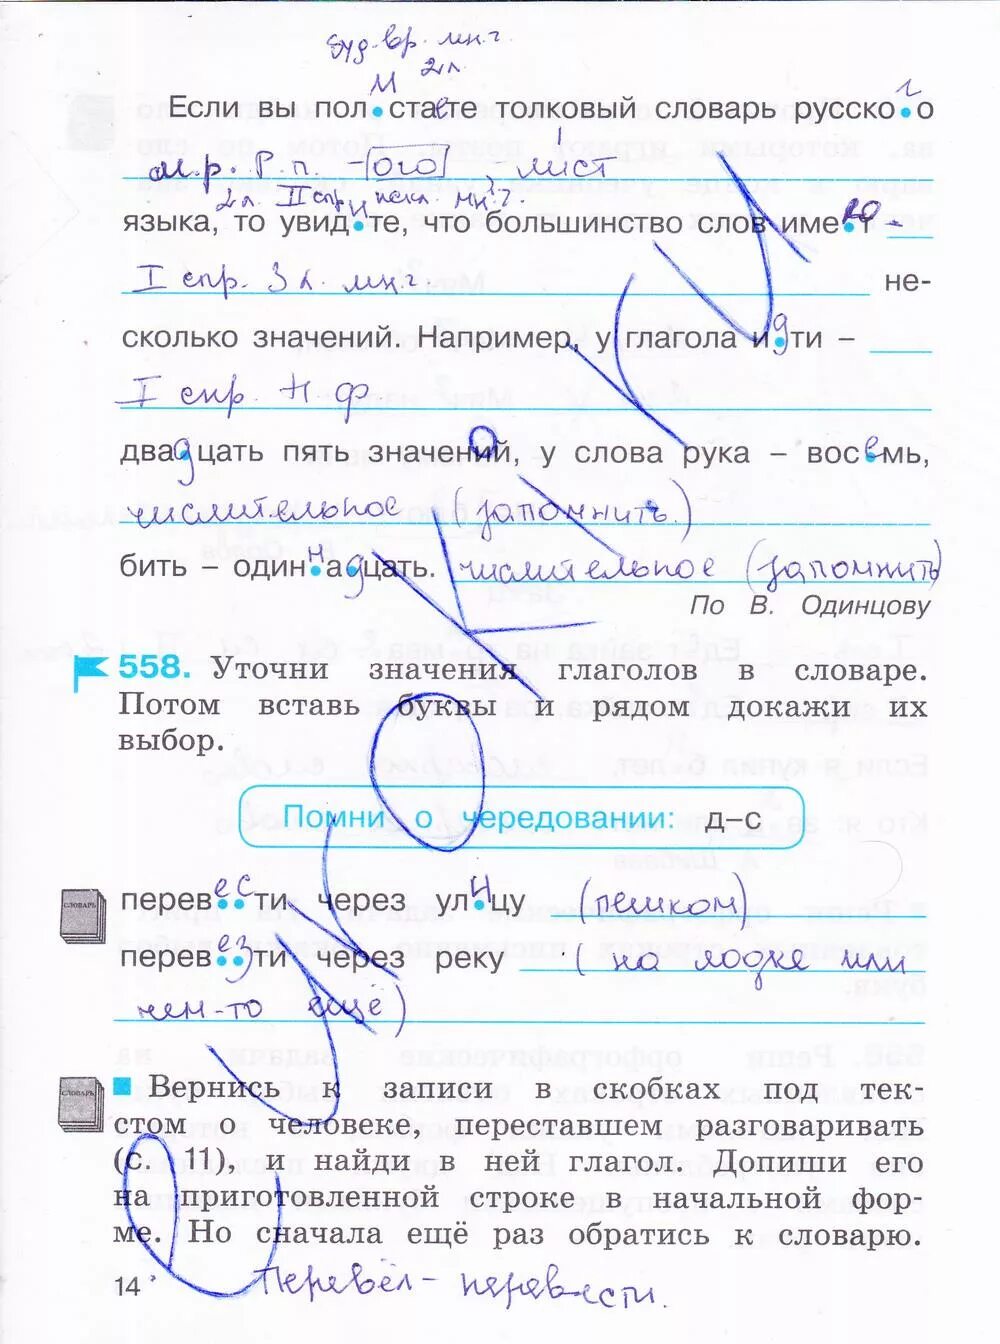 буд.вр. мн.ч.
2л.
Если вы пол и стаете толковый словарь русско г о
м.р. Р.п. -[ого] - лист
2л. II спр, искл. мн.ч.
языка, то увид и те, что большинство слов име ю т –
I спр. 3л мн.ч. не-
сколько значений. Например, у глагола и д ти –
I спр. Н ф
два д цать пять значений, у слова рука – вос е мь,
числительное (запомнить.)
бить – один н а д цать. числительное (запомнить)
По В. Одинцову
558. Уточни значения глаголов в словаре.
Потом вставь буквы и рядом докажи их
выбор.
Помни о чередовании: д–с
СЛОВАРЬ перев ес ти через ул и цу (пешком)
перев ез ти через реку (на лодке или
чем-то ещё)
СЛОВАРЬ Вернись к записи в скобках под тек-
стом о человеке, переставшем разговаривать
(с. 11), и найди в ней глагол. Допиши его
на приготовленной строке в начальной фор-
ме. Но сначала ещё раз обратись к словарю.
14 Перевёл - перевести.